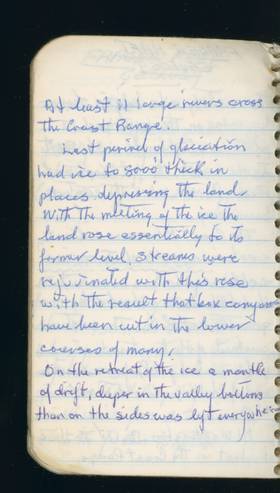 At least 11 large rivers cross
the Coast Range.
Last period of glaciation
had ice to 8000 thick in
places depressing the land
With the melting of the ice the
land rose essentially to its
former level, streams were
rejuvinated with this rose
with the result that box canyons
have been cut in the lower
courses of many.
On the retreat of the ice a mantle
of drift, deeper in the valley bottoms
than on the sides was left everywhere